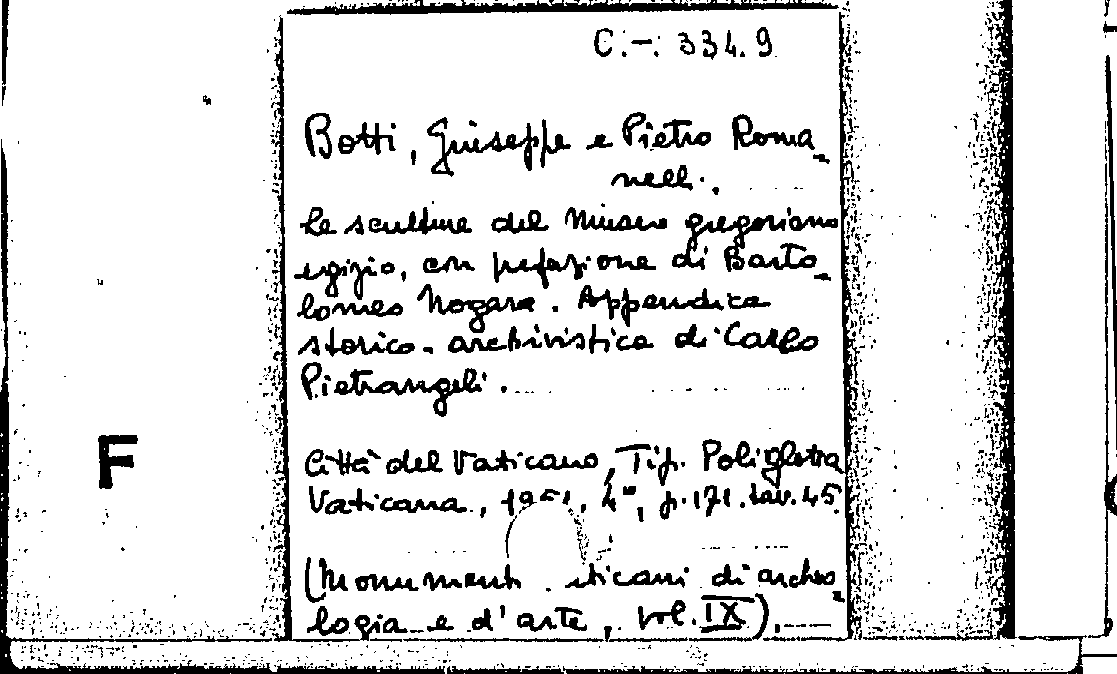 C.-. 334.9
Botti, Giuseppe e Pietro Roma-
nelli.
Le sculture del Museo gregoriano
egizio, con prefazione di Barto-
lomeo Nogara. Appendice
storico-archivistica di Carlo
Pietrangeli.
F
Città del Vaticano, Tip. Poliglotta
Vaticana, 1951, 4°, p. 171. tav. 45.
(Monumenti aticani di archeo-
logia e d'arte, vol. IX).